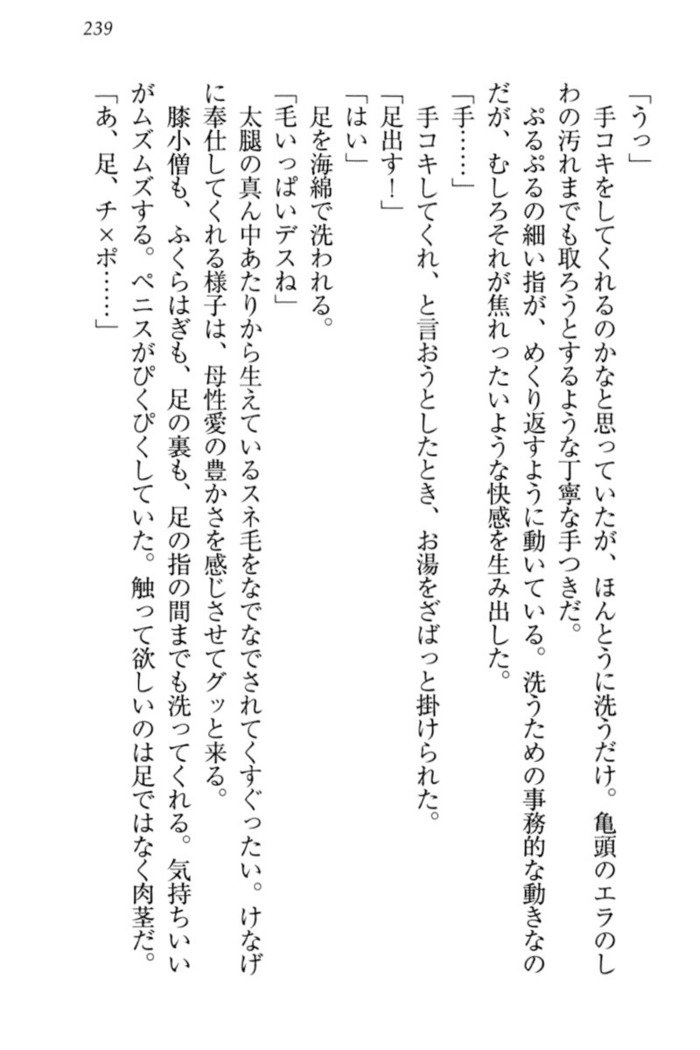 239
「うっ」
　手コキをしてくれるのかなと思っていたが、ほんとうに洗うだけ。亀頭のエラのし
わの汚れまでも取ろうとするような丁寧な手つきだ。
　ぷるぷるの細い指が、めくり返すように動いている。洗うための事務的な動きなの
だが、むしろそれが焦れったいような快感を生み出した。
「手……」
　手コキしてくれ、と言おうとしたとき、お湯をざばっと掛けられた。
「足出す！」
「はい」
　足を海綿で洗われる。
「毛いっぱいデスね」
　太腿の真ん中あたりから生えているスネ毛をなでなでされてくすぐったい。けなげ
に奉仕してくれる様子は、母性愛の豊かさを感じさせてグッと来る。
　膝小僧も、ふくらはぎも、足の裏も、足の指の間までも洗ってくれる。気持ちいい
がムズムズする。ペニスがぴくぴくしていた。触って欲しいのは足ではなく肉茎だ。
「あ、足、チ×ポ……」